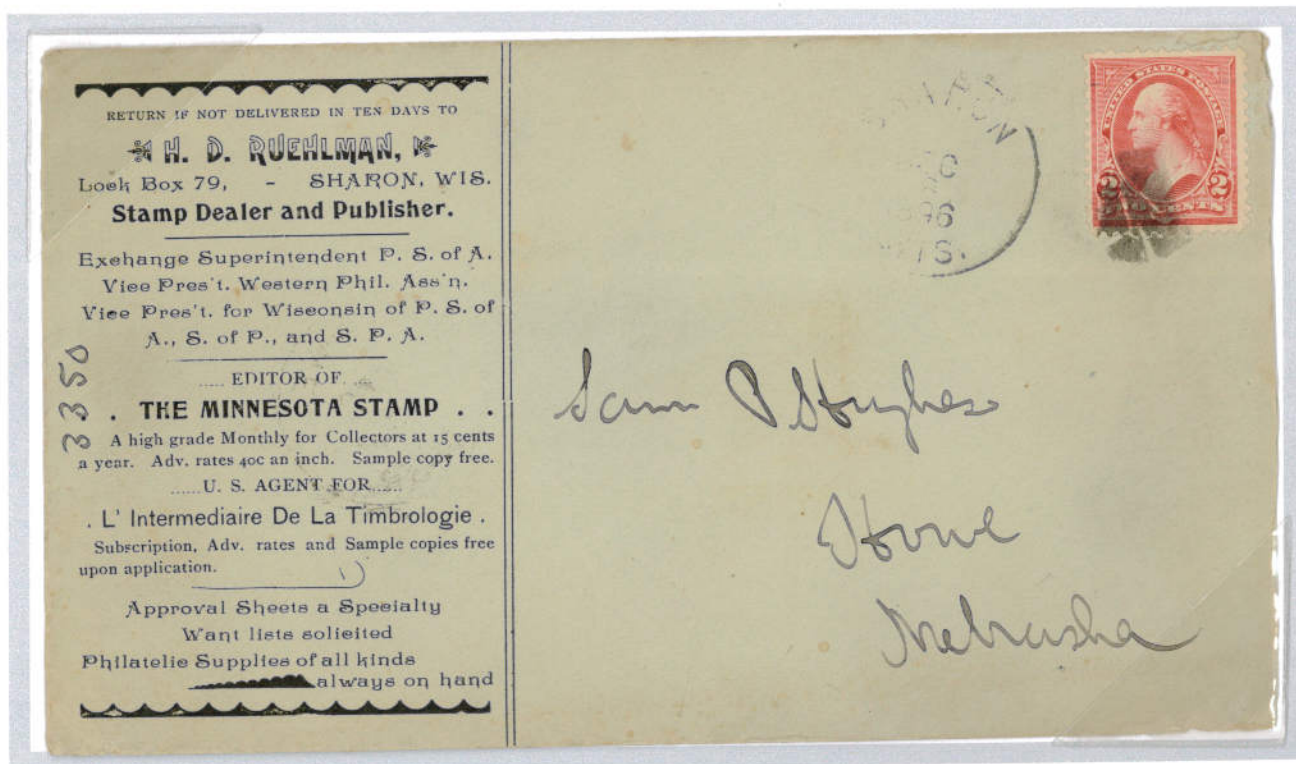 RETURN IF NOT DELIVERED IN TEN DAYS TO
H. D. RUEHLMAN,
Lock Box 79, - SHARON, WIS.
Stamp Dealer and Publisher.
Exchange Superintendent P. S. of A.
Vice Pres't. Western Phil. Ass'n.
Vice Pres't. for Wisconsin of P. S. of
A., S. of P., and S. P. A.
..... EDITOR OF.....
. THE MINNESOTA STAMP . .
A high grade Monthly for Collectors at 15 cents
a year. Adv. rates 40c an inch. Sample copy free.
......U. S. AGENT FOR......
. L' Intermediaire De La Timbrologie .
Subscription, Adv. rates and Sample copies free
upon application.
Approval Sheets a Specialty
Want lists solicited
Philatelic Supplies of all kinds
always on hand
3350
SHARON
96
WIS.
UNITED STATES POSTAGE
2 2
TWO CENTS
Sam P Hughes
Howe
Nebraska